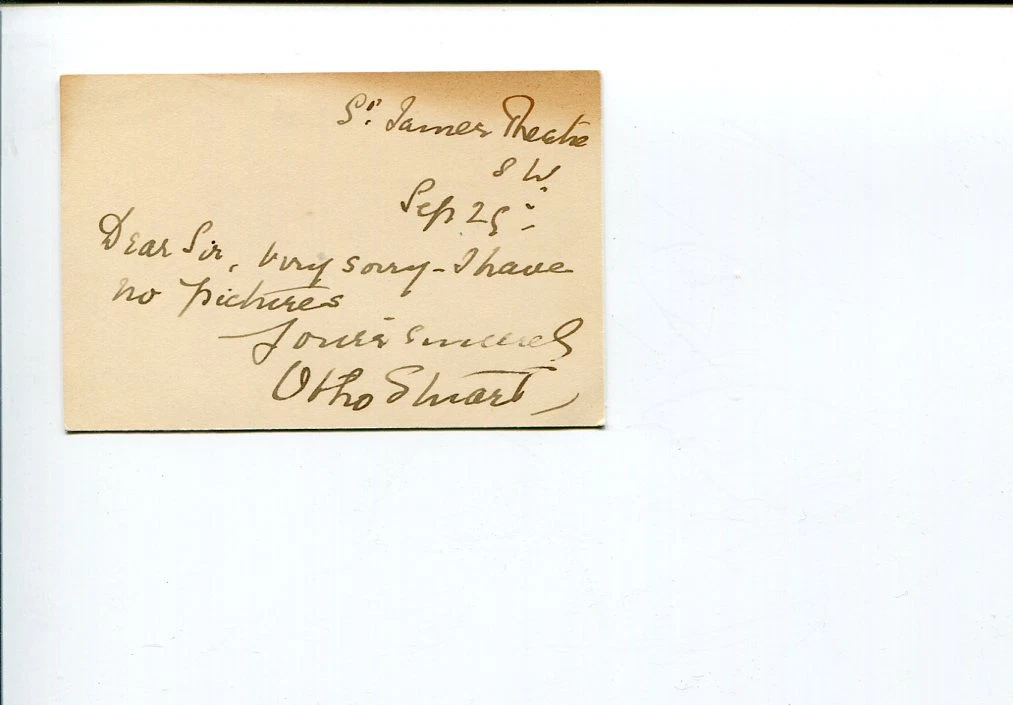 St. James Theatre
S W
Sep 25th
Dear Sir, Very sorry - I have
no pictures
Yours sincerely
Otho Stuart